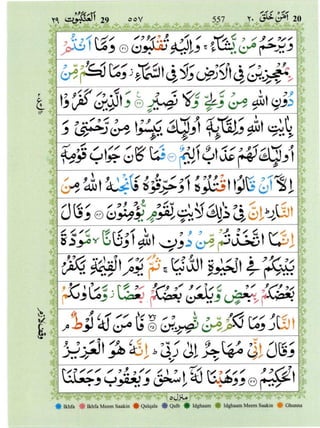 ٢٩ اَلْعَنْكَبُوْت 29 ٥٥٧ 557 اَمَّنْ خَلَقَ ٢٠ 20
وَيَرْحَمُ مَنْ يَّشَآءُ ۚ وَاِلَيْهِ تُقْلَبُوْنَ ۝ وَمَآ اَنْتُمْ
بِمُعْجِزِيْنَ فِى الْاَرْضِ وَلَا فِى السَّمَآءِ ۡ وَمَا لَكُمْ مِّنْ
دُوْنِ اللّٰهِ مِنْ وَّلِىٍّ وَّلَا نَصِيْرٍ ۝ وَالَّذِيْنَ كَفَرُوْا
بِاٰيٰتِ اللّٰهِ وَلِقَآئِهٖۤ اُولٰٓئِكَ يَئِسُوْا مِنْ رَّحْمَتِىْ وَ
اُولٰٓئِكَ لَهُمْ عَذَابٌ اَلِيْمٌ ۝ فَمَا كَانَ جَوَابَ قَوْمِهٖۤ
اِلَّاۤ اَنْ قَالُوا اقْتُلُوْهُ اَوْ حَرِّقُوْهُ فَاَنْجٰىهُ اللّٰهُ مِنَ
النَّارِ ؕ اِنَّ فِىْ ذٰلِكَ لَاٰيٰتٍ لِّقَوْمٍ يُّؤْمِنُوْنَ ۝ وَقَالَ
اِنَّمَا اتَّخَذْتُمْ مِّنْ دُوْنِ اللّٰهِ اَوْثَانًا ۙ مَّوَدَّةَ
بَيْنِكُمْ فِى الْحَيٰوةِ الدُّنْيَا ۚ ثُمَّ يَوْمَ الْقِيٰمَةِ يَكْفُرُ
بَعْضُكُمْ بِبَعْضٍ وَّيَلْعَنُ بَعْضُكُمْ بَعْضًا ۡ وَّمَاْوٰىكُمُ
النَّارُ وَمَا لَكُمْ مِّنْ نّٰصِرِيْنَ ۝ فَاٰمَنَ لَهٗ لُوْطٌ ۘ
وَقَالَ اِنِّىْ مُهَاجِرٌ اِلٰى رَبِّىْ ؕ اِنَّهٗ هُوَ الْعَزِيْزُ
الْحَكِيْمُ ۝ وَوَهَبْنَا لَهٗۤ اِسْحٰقَ وَيَعْقُوْبَ وَجَعَلْنَا
منزل ٥
Ikhfa Ikhfa Meem Saakin Qalqala Qalb Idghaam Idghaam Meem Saakin Ghunna